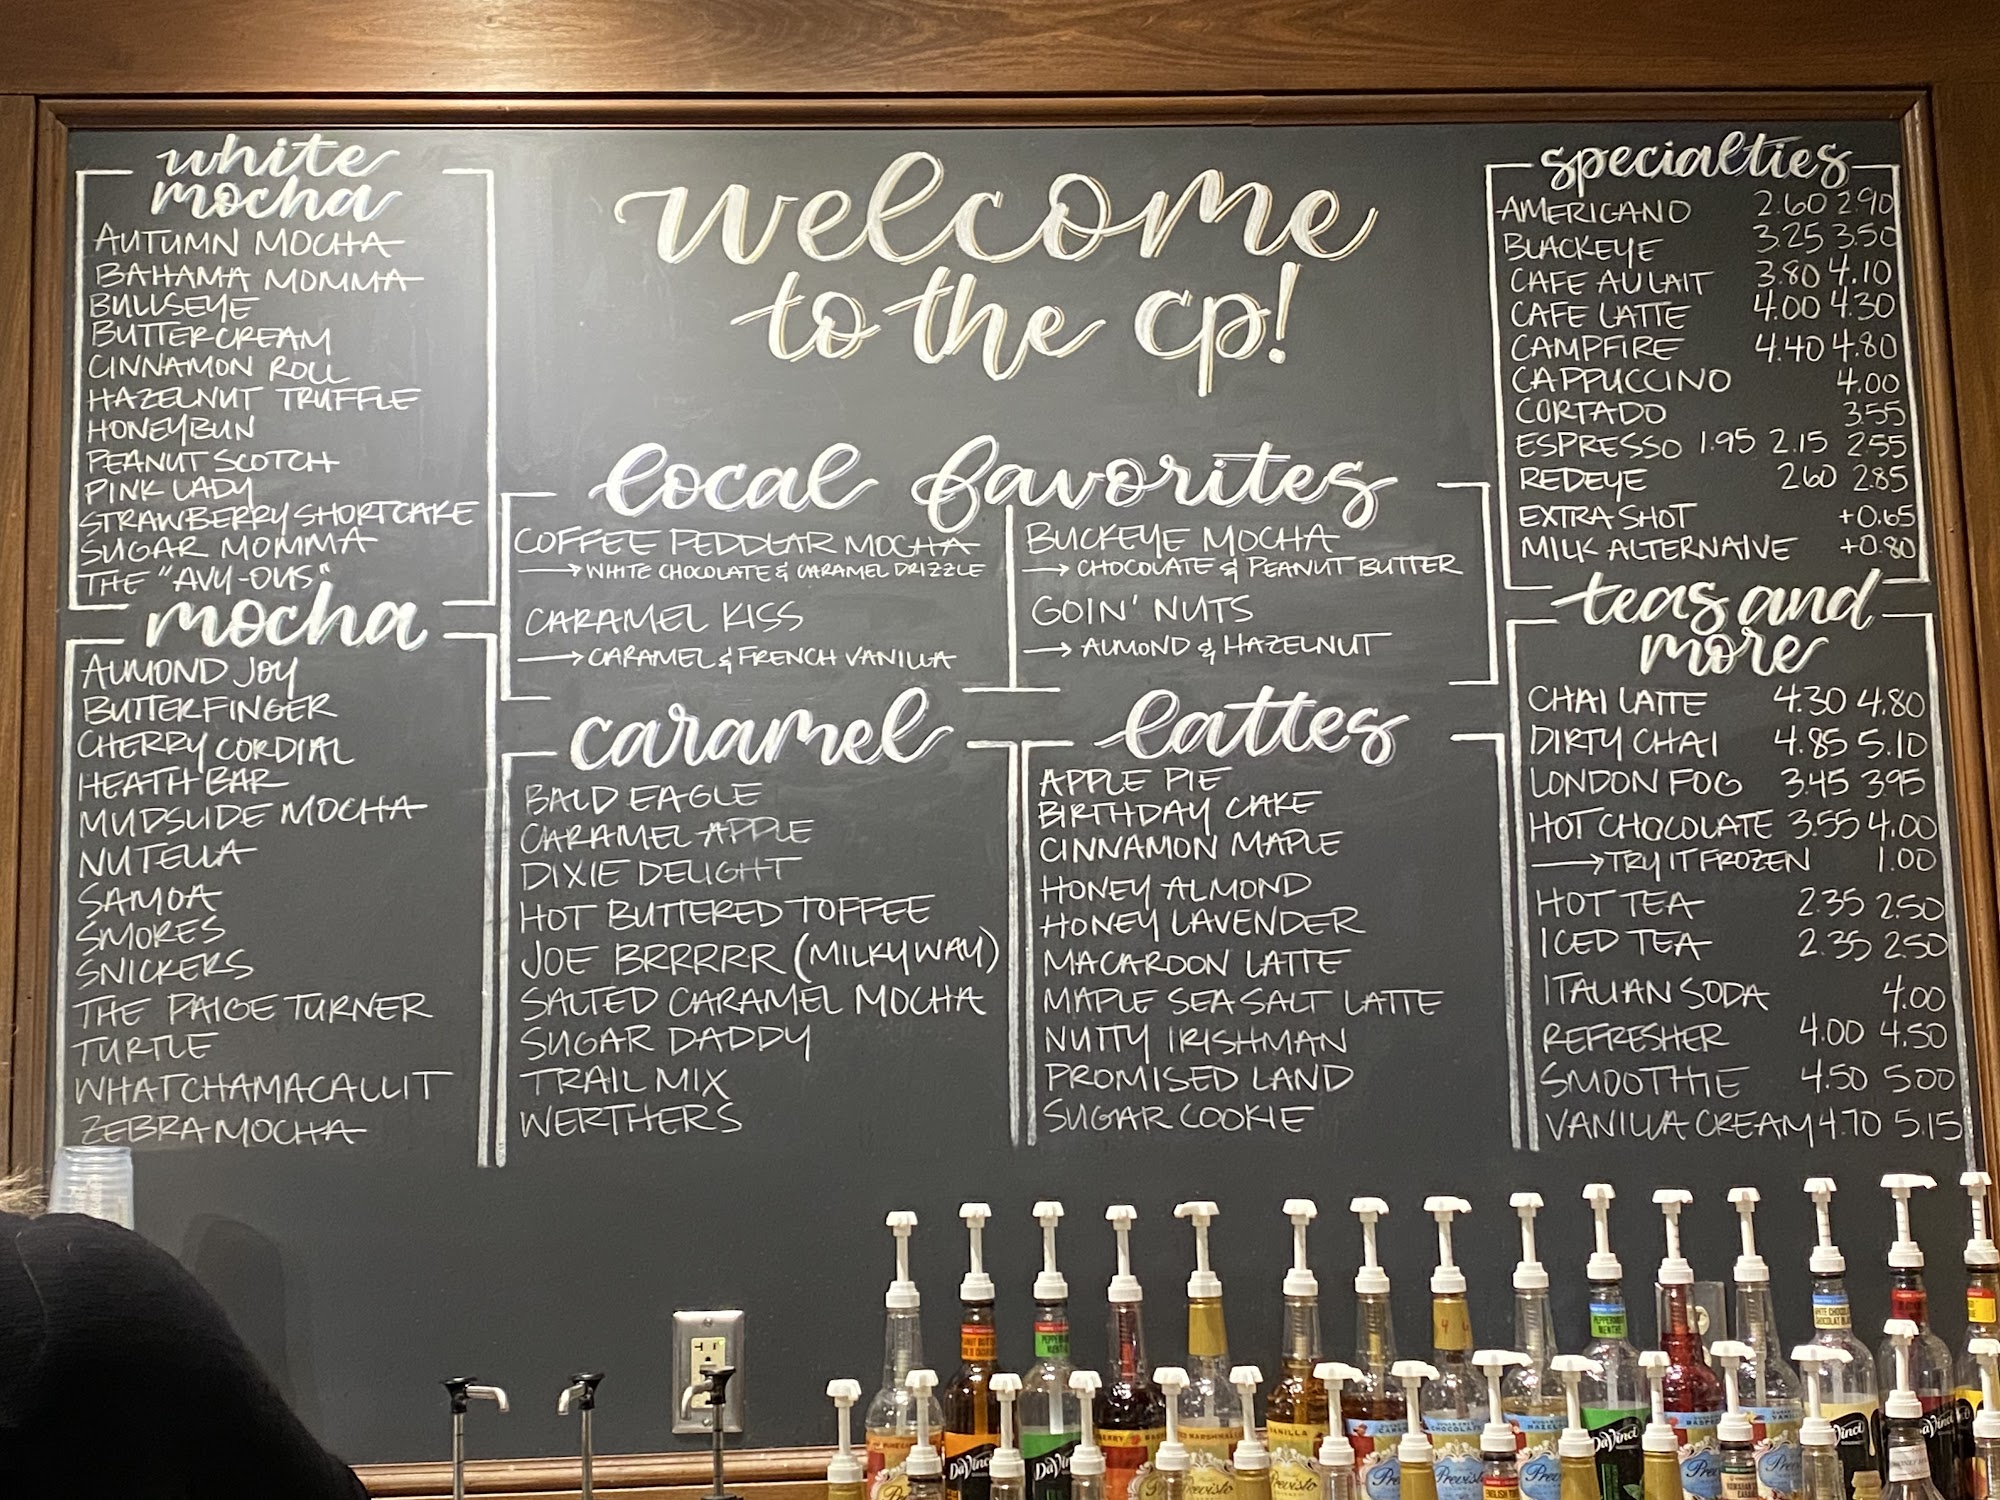 welcome
to the cp!
white
mocha
AUTUMN MOCHA
BAHAMA MOMMA
BULLSEYE
BUTTERCREAM
CINNAMON ROLL
HAZELNUT TRUFFLE
HONEYBUN
PEANUT SCOTCH
PINK LADY
STRAWBERRY SHORTCAKE
SUGAR MOMMA
THE "AVY-OUS"
mocha
ALMOND JOY
BUTTERFINGER
CHERRY CORDIAL
HEATH BAR
MUDSLIDE MOCHA
NUTELLA
SAMOA
SMORES
SNICKERS
THE PAIGE TURNER
TURTLE
WHATCHAMACALLIT
ZEBRA MOCHA
local favorites
COFFEE PEDDLAR MOCHA
→ WHITE CHOCOLATE & CARAMEL DRIZZLE
CARAMEL KISS
→ CARAMEL & FRENCH VANILLA
BUCKEYE MOCHA
→ CHOCOLATE & PEANUT BUTTER
GOIN' NUTS
→ ALMOND & HAZELNUT
caramel
BALD EAGLE
CARAMEL APPLE
DIXIE DELIGHT
HOT BUTTERED TOFFEE
JOE BRRRRR (MILKY WAY)
SALTED CARAMEL MOCHA
SUGAR DADDY
TRAIL MIX
WERTHERS
lattes
APPLE PIE
BIRTHDAY CAKE
CINNAMON MAPLE
HONEY ALMOND
HONEY LAVENDER
MACAROON LATTE
MAPLE SEA SALT LATTE
NUTTY IRISHMAN
PROMISED LAND
SUGAR COOKIE
specialties
AMERICANO 2.60 2.90
BLACKEYE 3.25 3.50
CAFE AU LAIT 3.80 4.10
CAFE LATTE 4.00 4.30
CAMPFIRE 4.40 4.80
CAPPUCCINO 4.00
CORTADO 3.55
ESPRESSO 1.95 2.15 2.55
REDEYE 2.60 2.85
EXTRA SHOT +0.65
MILK ALTERNAIVE +0.80
teas and
more
CHAI LATTE 4.30 4.80
DIRTY CHAI 4.85 5.10
LONDON FOG 3.45 3.95
HOT CHOCOLATE 3.55 4.00
→ TRY IT FROZEN 1.00
HOT TEA 2.35 2.50
ICED TEA 2.35 2.50
ITALIAN SODA 4.00
REFRESHER 4.00 4.50
SMOOTHIE 4.50 5.00
VANILLA CREAM 4.70 5.15
DaVinci
DaVinci
VANILLA
DaVinci
Previsto
Previsto